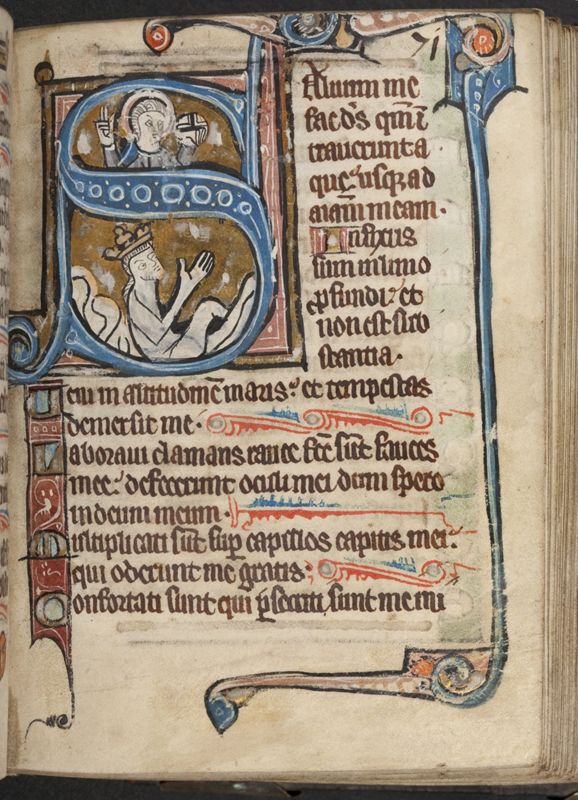 71
Saluum me
fac ds qm̄ ī
trauerunt a
que usq; ad
aīam meam.
Infixus
sum in limo
ꝓfundi: et
non est sub
stantia.
Ueni in altitudinē maris: et tempestas
demersit me.
Laboraui clamans rauce fcē sūt fauces
mee: defecerunt oculi mei dum spero
in deum meum.
Multiplicati sūt sup̄ capillos capitis mei:
qui oderunt me gratis.
Confortati sunt qui p̄secuti sunt me ini